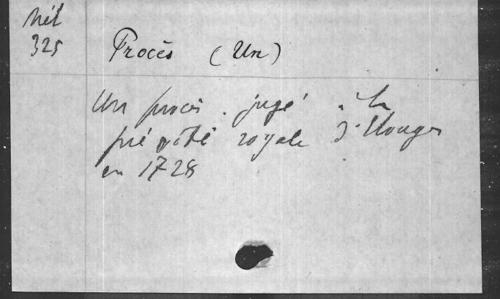 Mél
325
Procès (Un)
Un procès jugé à la
prévôté royale d'Elouges
en 1728